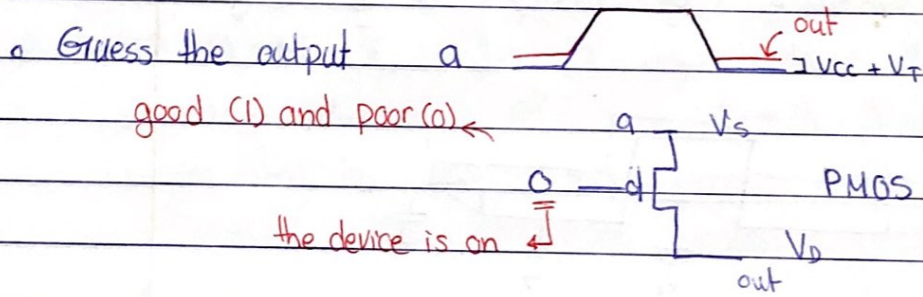 out
• Guess the output a ] VCC + VT
good (1) and poor (0) ←
a Vs
0 PMOS
the device is on
VD
out